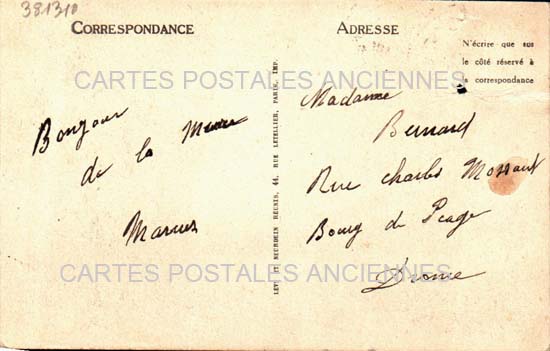 381310
CORRESPONDANCE
ADRESSE
N'écrire que sur
le côté réservé à
la correspondance
CARTES POSTALES ANCIENNES
Bonjour
de la
Marcus
LEVY ET NEURDEIN RÉUNIS, 44, RUE LETELLIER, PARIS, IMP.
Madame
Bernard
Rue Charles Mossant
Bourg de Péage
Drome
CARTES POSTALES ANCIENNES